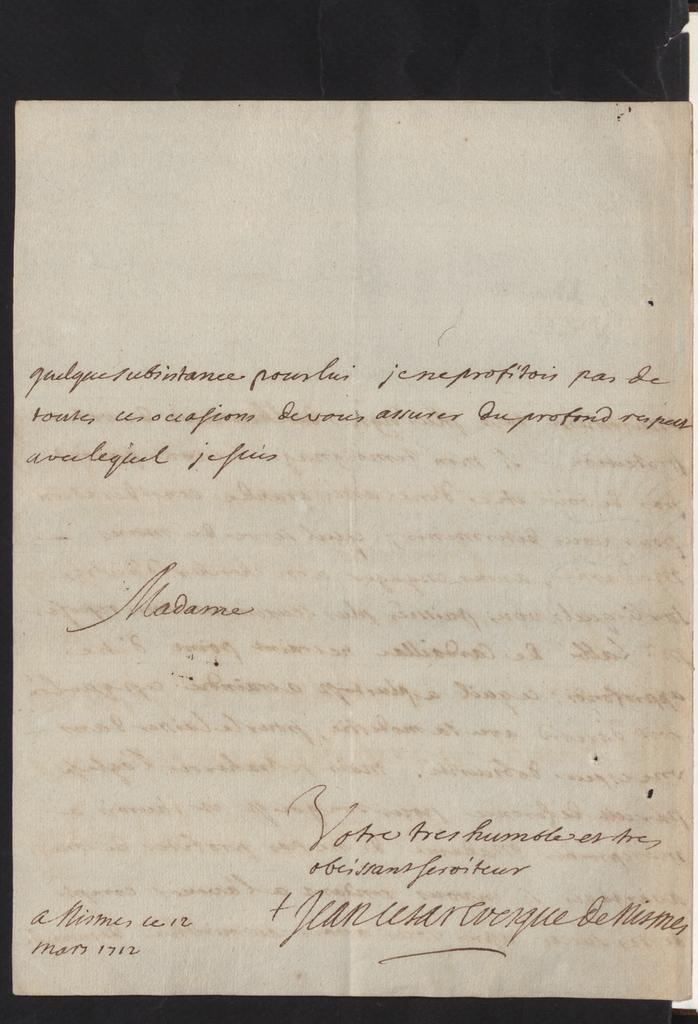 quelque subsistance pour lui je ne profitois pas de
toutes ces occasions de vous assurer du profond respect
avec lequel je suis
Madame
Votre tres humble et tres
obeissant serviteur
+ Jean Cesar Evesque de Nismes
a Nismes ce 12
mars 1712